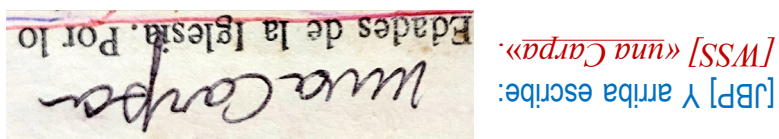 [JBP] Y arriba escribe:
[WSS] «una Carpa».
una Carpa
Edades de la Iglesia. Por lo